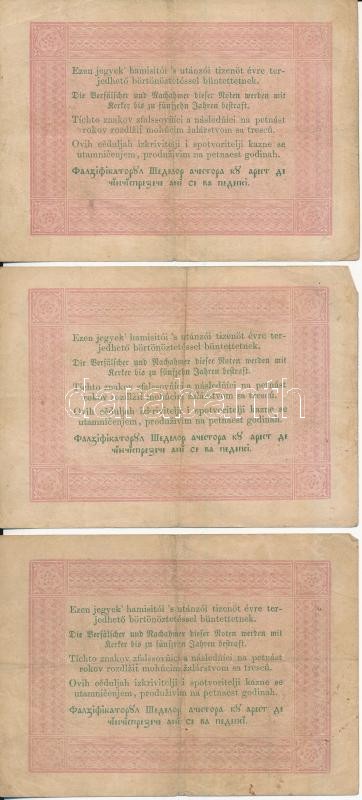 Ezen jegyek' hamisítói 's utánzói tizenöt évre ter-
jedhető börtönöztetéssel büntettetnek.
Die Verfälscher und Nachahmer dieser Noten werden mit
Kerker bis zu fünfzehn Jahren bestraft.
Tíchto znakov zfalssovňíci a následňíci na petnást
rokov rozdlžiť mohúcim žalárstvom sa trescú.
Ovih céduljah izkrivitelji i spotvoritelji kazne se
utamničenjem, produživim na petnaest godinah.
Фалзіфікаторул Шеделор ачестора кꙋ арест де
чінчіпрезече ані се ва педепсі.
Ezen jegyek' hamisítói 's utánzói tizenöt évre ter-
jedhető börtönöztetéssel büntettetnek.
Die Verfälscher und Nachahmer dieser Noten werden mit
Kerker bis zu fünfzehn Jahren bestraft.
Tíchto znakov zfalssovňíci a následňíci na petnást
rokov rozdlžiť mohúcim žalárstvom sa trescú.
Ovih céduljah izkrivitelji i spotvoritelji kazne se
utamničenjem, produživim na petnaest godinah.
Фалзіфікаторул Шеделор ачестора кꙋ арест де
чінчіпрезече ані се ва педепсі.
darabanth
Ezen jegyek' hamisítói 's utánzói tizenöt évre ter-
jedhető börtönöztetéssel büntettetnek.
Die Verfälscher und Nachahmer dieser Noten werden mit
Kerker bis zu fünfzehn Jahren bestraft.
Tíchto znakov zfalssovňíci a následňíci na petnást
rokov rozdlžiť mohúcim žalárstvom sa trescú.
Ovih céduljah izkrivitelji i spotvoritelji kazne se
utamničenjem, produživim na petnaest godinah.
Фалзіфікаторул Шеделор ачестора кꙋ арест де
чінчіпрезече ані се ва педепсі.